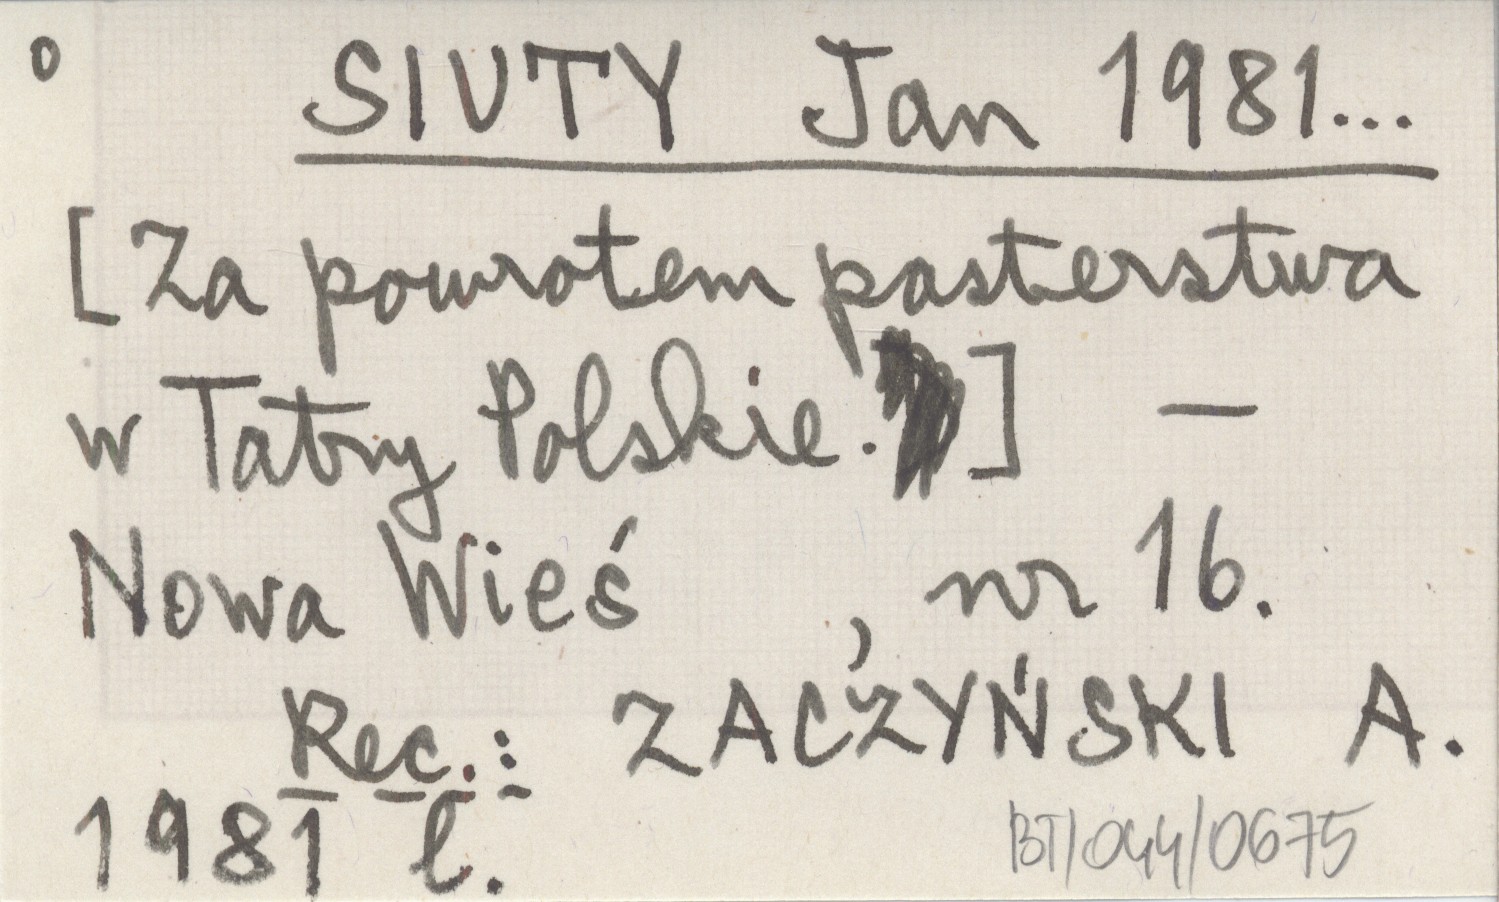 o SIUTY Jan 1981...
[Za powrotem pasterstwa
w Tatry Polskie.] —
Nowa Wieś, nr 16.
Rec.: ZACZYŃSKI A.
1981 l.
BT/044/0675